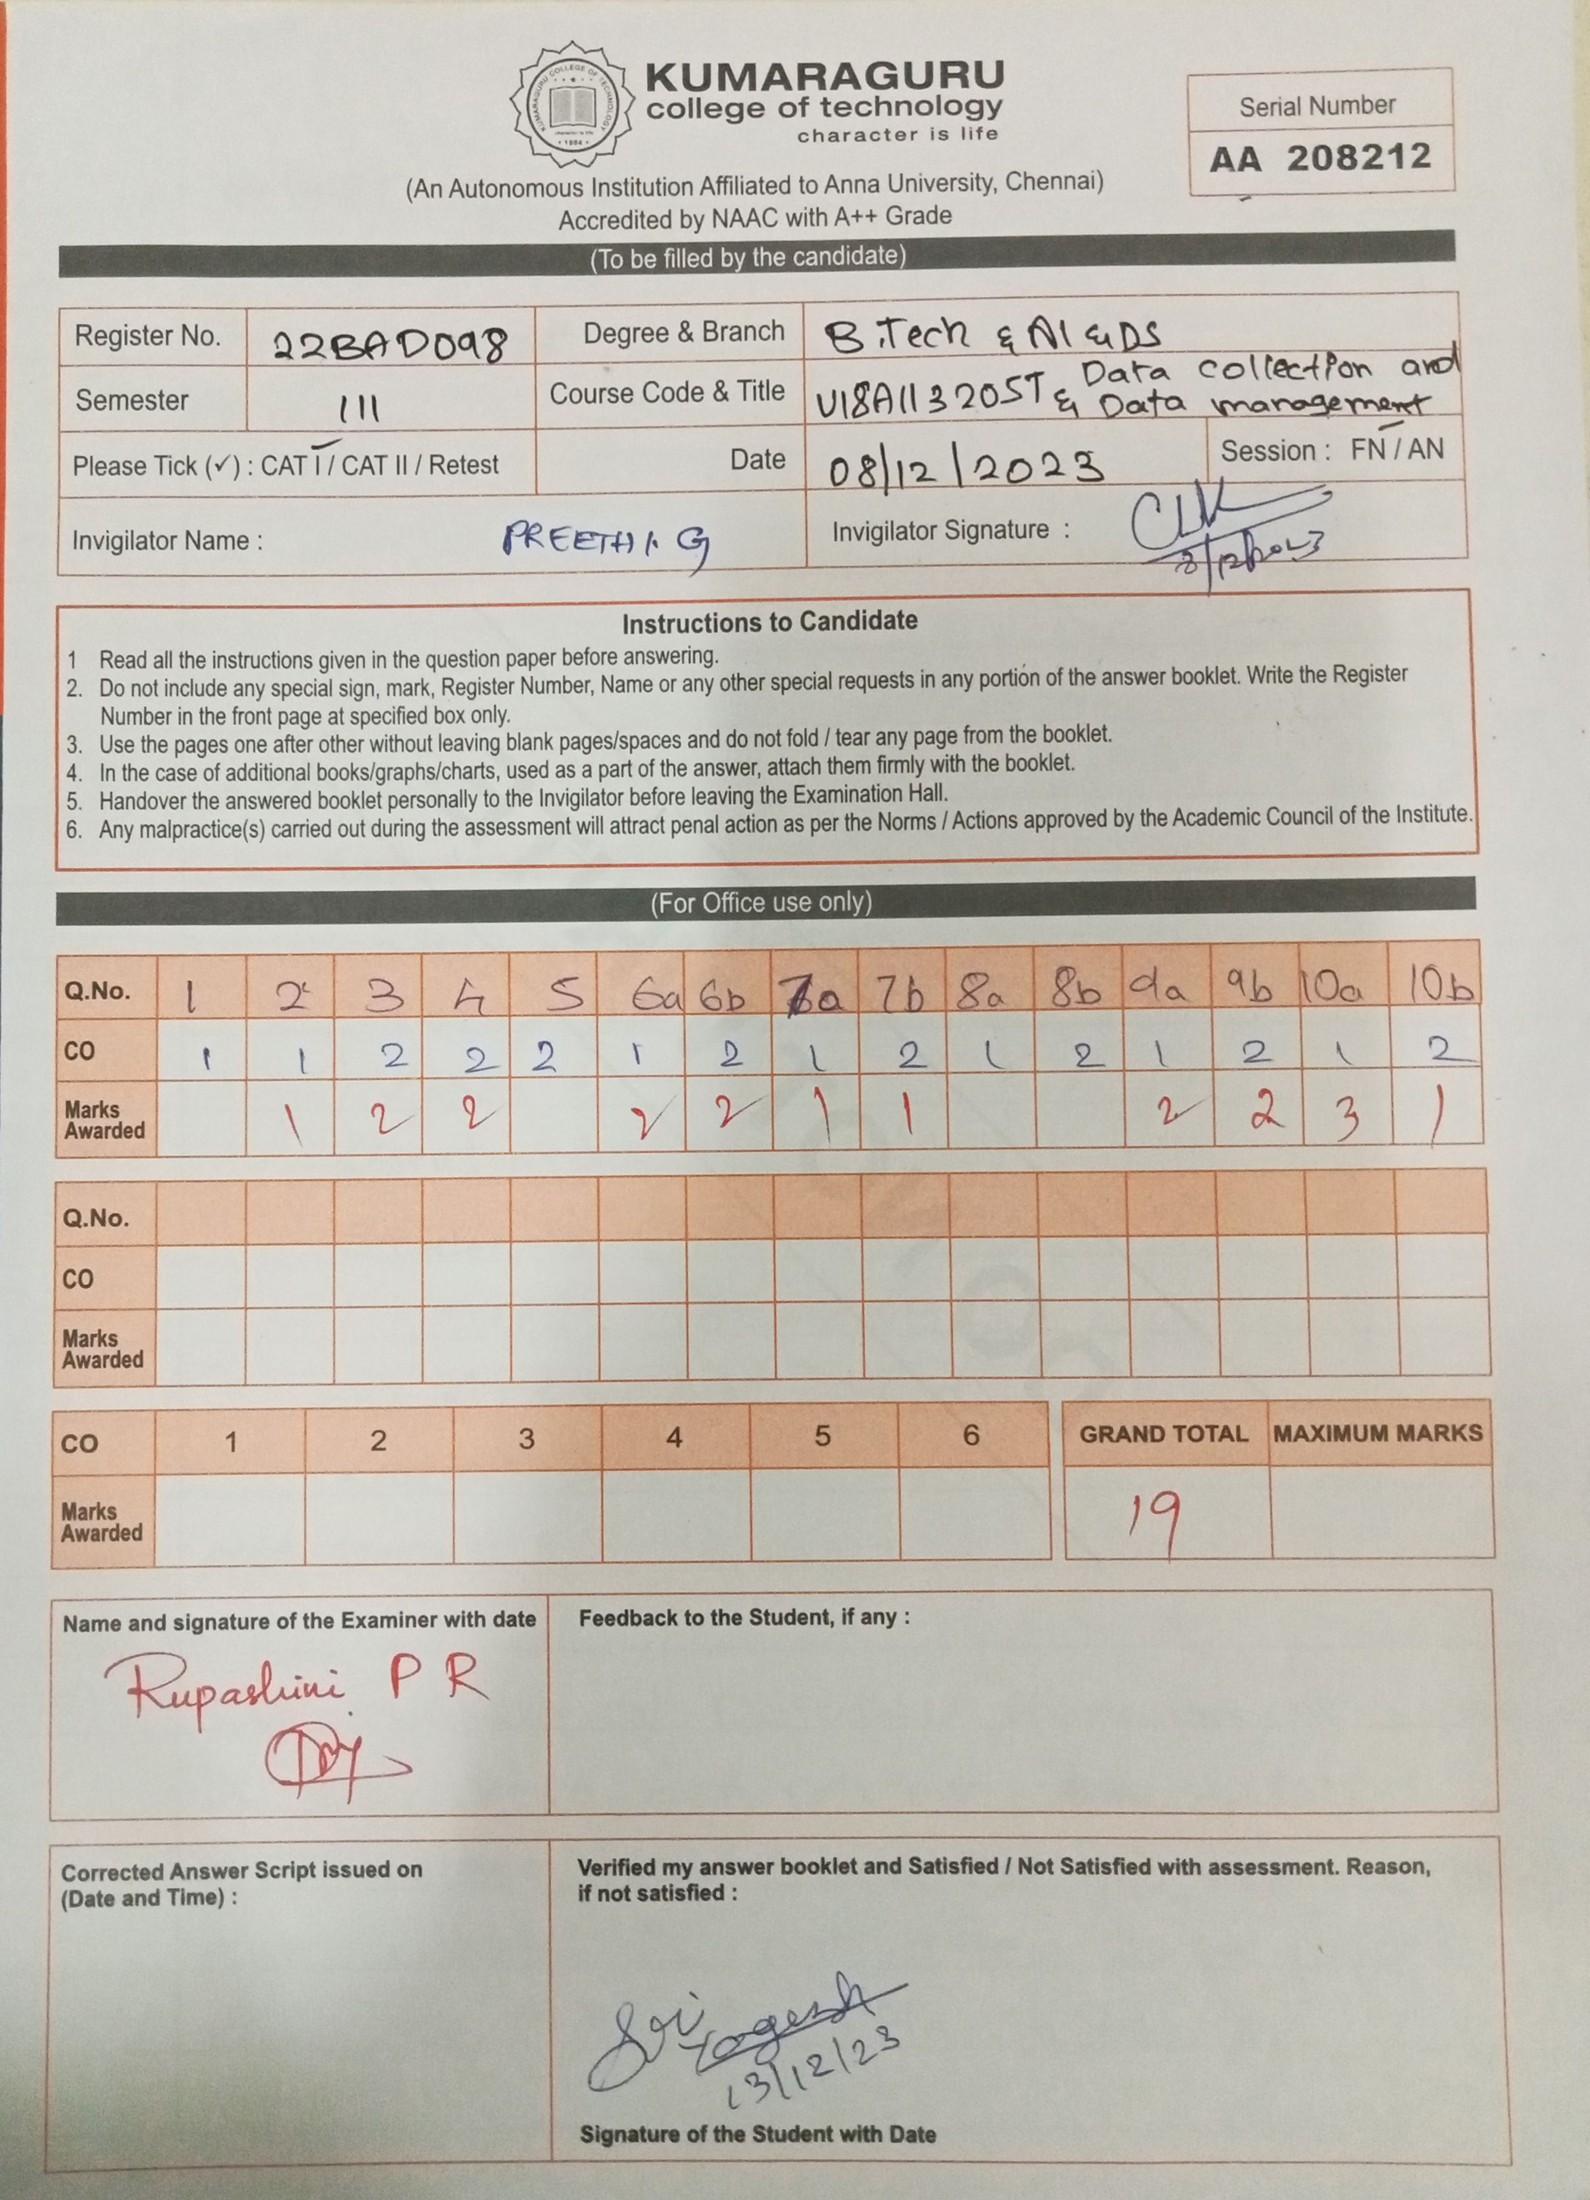 KUMARAGURU
college of technology
character is life
Serial Number
AA 208212
(An Autonomous Institution Affiliated to Anna University, Chennai)
Accredited by NAAC with A++ Grade
(To be filled by the candidate)
Register No. 22BAD098 Degree & Branch B.Tech & AI & DS
Semester III Course Code & Title U18AII3205T & Data collection and
Data management
Please Tick (✓) : CAT I / CAT II / Retest Date 08/12/2023 Session : FN / AN
Invigilator Name : PREETHI. G Invigilator Signature :
8/12/2023
Instructions to Candidate
1 Read all the instructions given in the question paper before answering.
2. Do not include any special sign, mark, Register Number, Name or any other special requests in any portion of the answer booklet. Write the Register
Number in the front page at specified box only.
3. Use the pages one after other without leaving blank pages/spaces and do not fold / tear any page from the booklet.
4. In the case of additional books/graphs/charts, used as a part of the answer, attach them firmly with the booklet.
5. Handover the answered booklet personally to the Invigilator before leaving the Examination Hall.
6. Any malpractice(s) carried out during the assessment will attract penal action as per the Norms / Actions approved by the Academic Council of the Institute.
(For Office use only)
Q.No. 1 2 3 4 5 6a 6b 7a 7b 8a 8b 9a 9b 10a 10b
CO 1 1 2 2 2 1 2 1 2 1 2 1 2 1 2
Marks Awarded 1 2 2 2 2 1 1 2 2 3 1
Q.No.
CO
Marks
Awarded
CO 1 2 3 4 5 6 GRAND TOTAL MAXIMUM MARKS
Marks
Awarded 19
Name and signature of the Examiner with date Feedback to the Student, if any :
Rupashini P R
Corrected Answer Script issued on
(Date and Time) :
Verified my answer booklet and Satisfied / Not Satisfied with assessment. Reason,
if not satisfied :
Sri Yogesh
13/12/23
Signature of the Student with Date